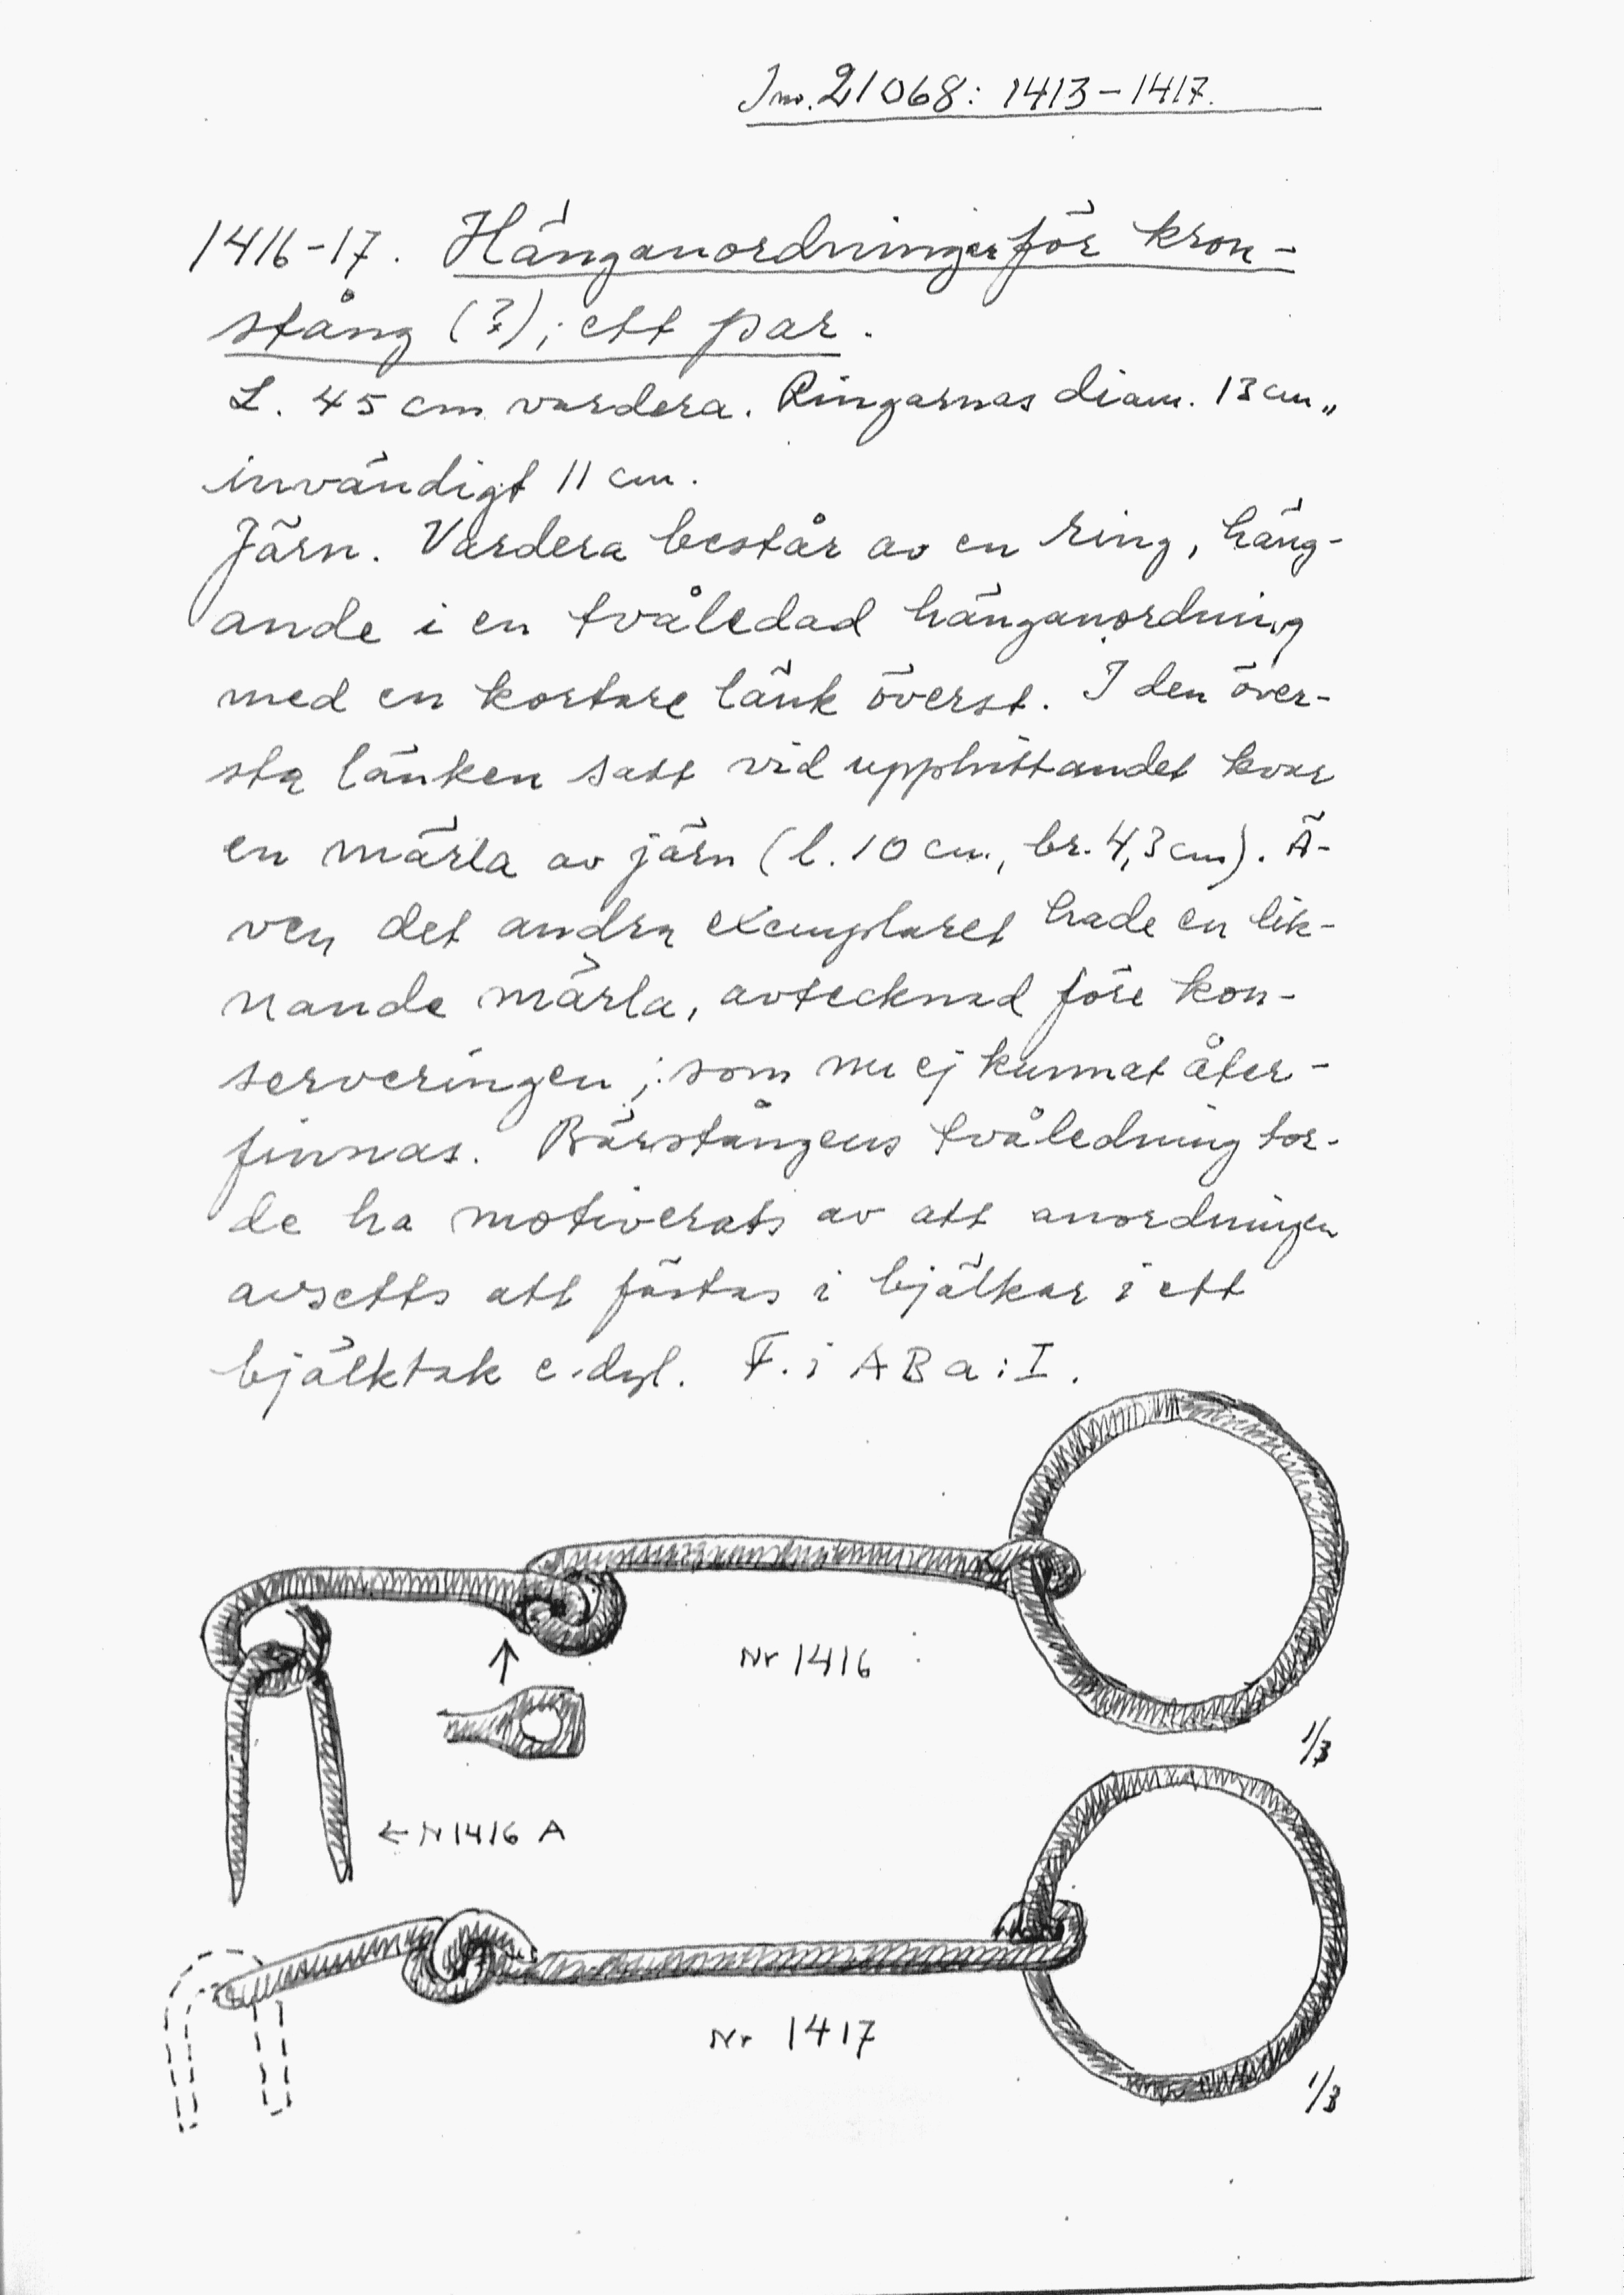 Inv. 21068: 1413-1417.
1416-17. Hänganordningar för kron-
stång (?); ett par.
L. 45 cm vardera. Ringarnas diam. 13 cm,,
invändigt 11 cm.
Järn. Vardera består av en ring, häng-
ande i en tvåledad hänganordning
med en kortare länk överst. I den över-
sta länken satt vid upphittandet kvar
en märla av järn (l. 10 cm., br. 4,3 cm). Ä-
ven det andra exemplaret hade en lik-
nande märla, avtecknad före kon-
serveringen; som nu ej kunnat åter-
finnas. Bärstångens tvåledning tor-
de ha motiverats av att anordningen
avsetts att fästas i bjälkar i ett
bjälktak e.dyl. F. i ABa:I.
Nr 1416
1/3
← N 1416 A
Nr 1417
1/3